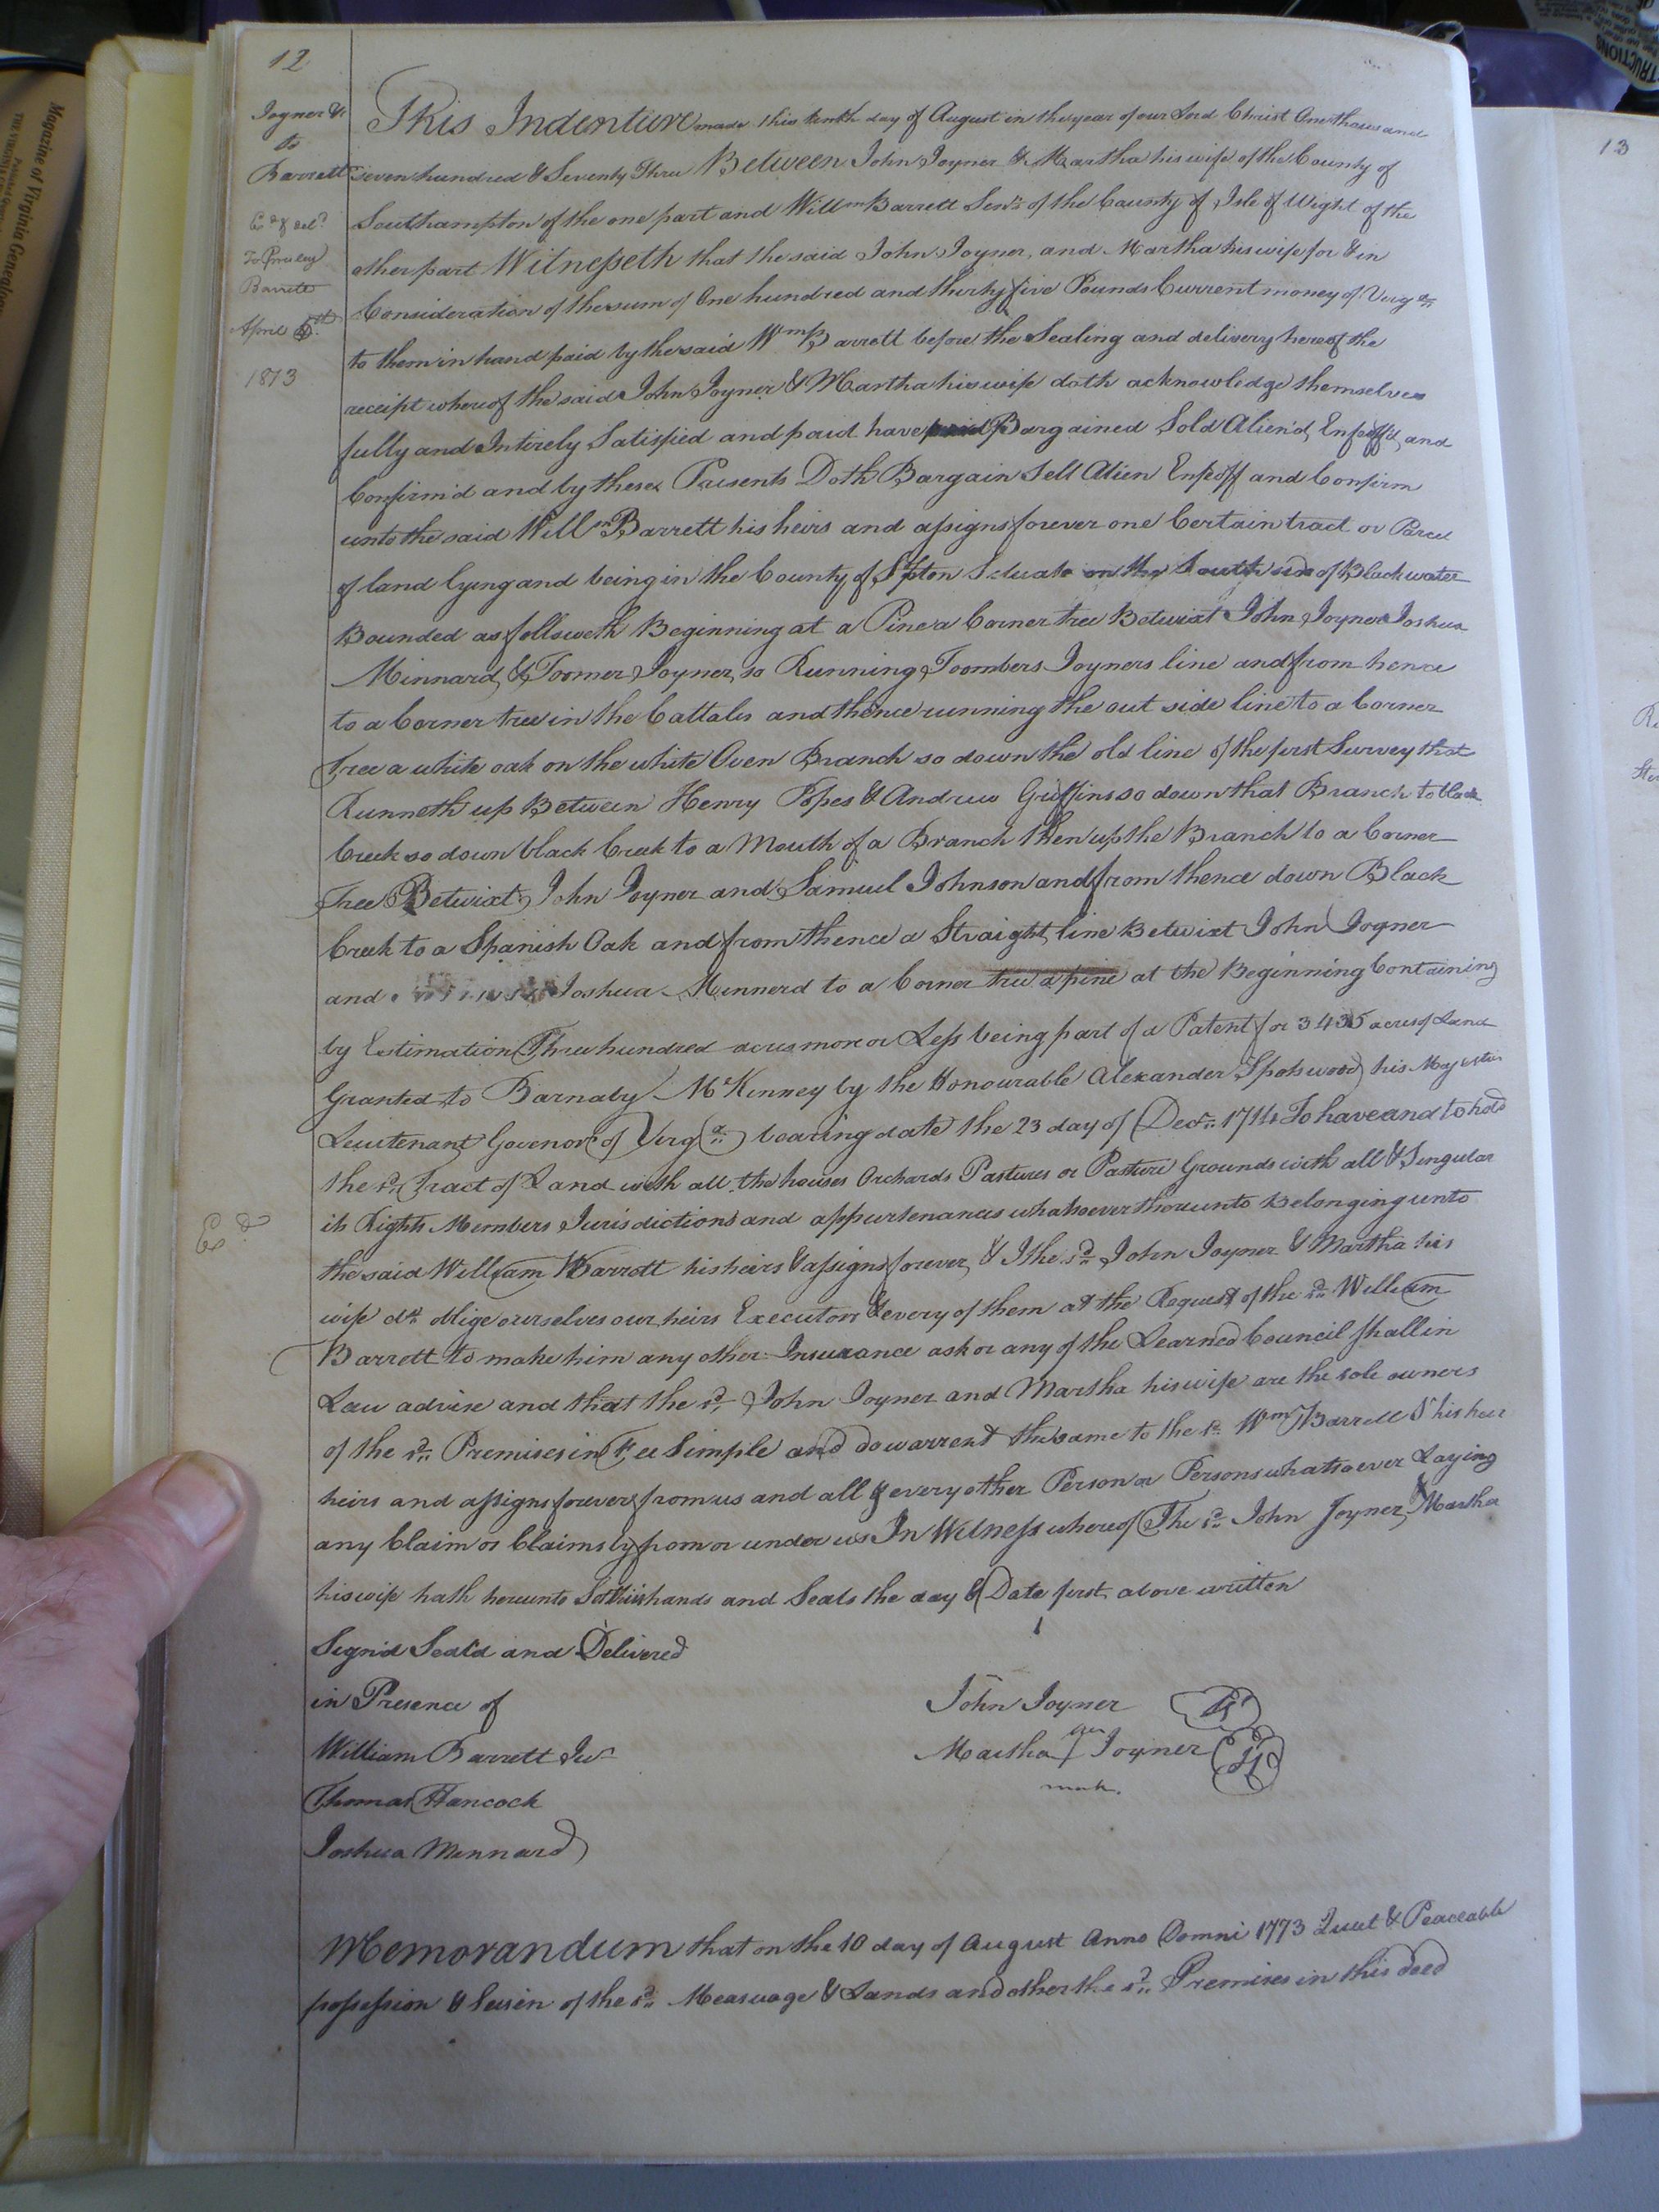 12
Joyner &c
to
Barrett
Ex.d & del.d
To Pursley
Barrett
April 5th
1813
Ex.d
This Indenture made this tenth day of August in the year of our Lord Christ One thousand
seven hundred & Seventy Three Between John Joyner & Martha his wife of the County of
Southampton of the one part and Willm Barrett Senr. of the County of Isle of Wight of the
other part Witnesseth that the said John Joyner, and Martha his wife for & in
Consideration of the sum of One hundred and thirty five Pounds Current money of Virga
to them in hand paid by the said Wm Barrett before the Sealing and delivery hereof the
receipt whereof the said John Joyner & Martha his wife doth acknowledge themselves
fully and Intirely Satisfied and paid have Bargained Sold Alien'd, Enfeoff'd, and
Confirm'd and by these Presents Doth Bargain Sell Alien Enfeoff and Confirm
unto the said Willm Barrett his heirs and assigns forever one Certain tract or Parcel
of land lying and being in the County of Sthton Situate on the South side of Blackwater
Bounded as followeth Beginning at a Pine a Corner tree Betwixt John Joyner Joshua
Minnard, & Toomer Joyner, so Running Toombers Joyners line and from hence
to a Corner tree in the Cattales and thence running the out side line to a Corner
Tree a white oak on the white Oven Branch so down the old line of the first Survey that
Runneth up Between Henry Popes & Andrew Griffins so down that Branch to black
Creek so down black Creek to a Mouth of a Branch then up the Branch to a Corner
Tree Betwixt John Joyner and Samuel Johnson and from thence down Black
Creek to a Spanish Oak and from thence a Straight line Betwixt John Joyner
and Joshua Minnerd to a Corner tree a pine at the Beginning Containing
by Estimation Three hundred acres more or Less being part of a Patent for 3435 acres of Land
Granted to Barnaby McKinney by the Honourable Alexander Spotswood his Majesties
Lieutenant Govenor of Virga bearing date the 23 day of Decr. 1714 To have and to hold
the sd. Tract of Land with all the houses Orchards Pastures or Pasture Grounds with all & Singular
its Rights Members Jurisdictions and appurtenances whatsoever thereunto Belonging unto
the said William Barrett his heirs & assigns forever, & I the sd. John Joyner & Martha his
wife dth oblige ourselves our heirs Executors & every of them at the Request of the sd. William
Barrett to make him any other Insurance ask or any of the Learned Council shall in
Law advise and that the sd. John Joyner and Martha his wife are the sole owners
of the sd. Premises in Fee Simple and do warrent the same to the sd. Wm Barrell S his heir
heirs and assigns forever from us and all & every other Person or Persons whatsoever Laying
any Claim or Claims by from or under us In Witness whereof The sd. John Joyner, & Martha
his wife hath hereunto Set their hands and Seals the day & Date first above written
Sign'd Seal'd and Delivered
in Presence of
John Joyner
William Barrett Junr
Martha her Joyner
mark.
Thomas Hancock
Joshua Mennard
Memorandum that on the 10 day of August Anno Domni 1773 Quiet & Peaceable
possession & Seisin of the sd. Measuage & Lands and other the sd. Premises in this deed
13
Magazine of Virginia Genealogy